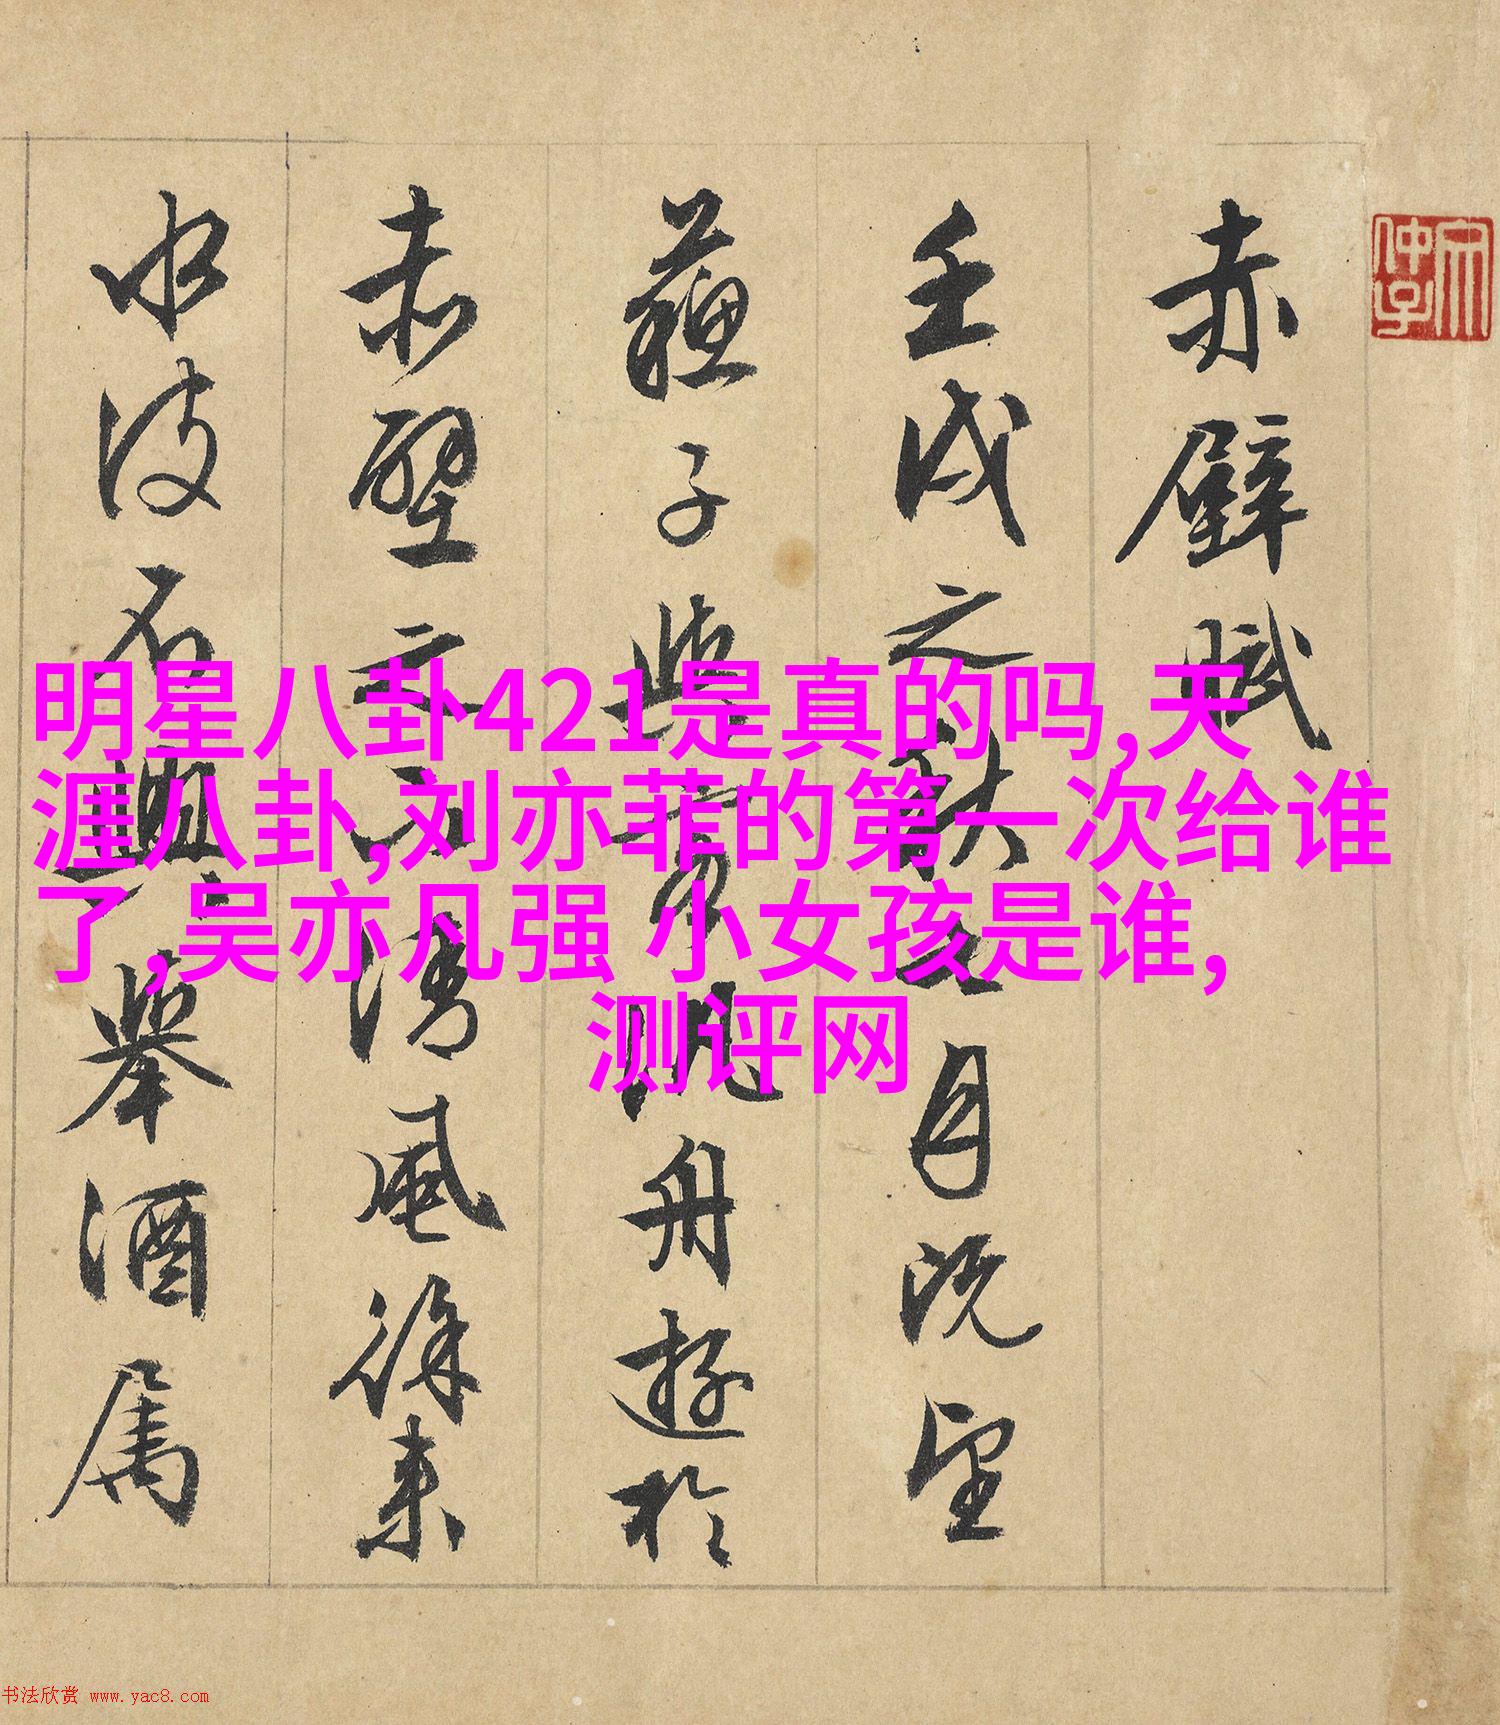 赤壁賦
壬戌之秋七月既望
蘇子與客泛舟遊於
赤壁之下清風徐來
水波不興舉酒屬
明星八卦421是真的吗,天
涯八卦,刘亦菲的第一次给谁
了,吴亦凡强 小女孩是谁,
测评网
书法欣赏 www.yac8.com